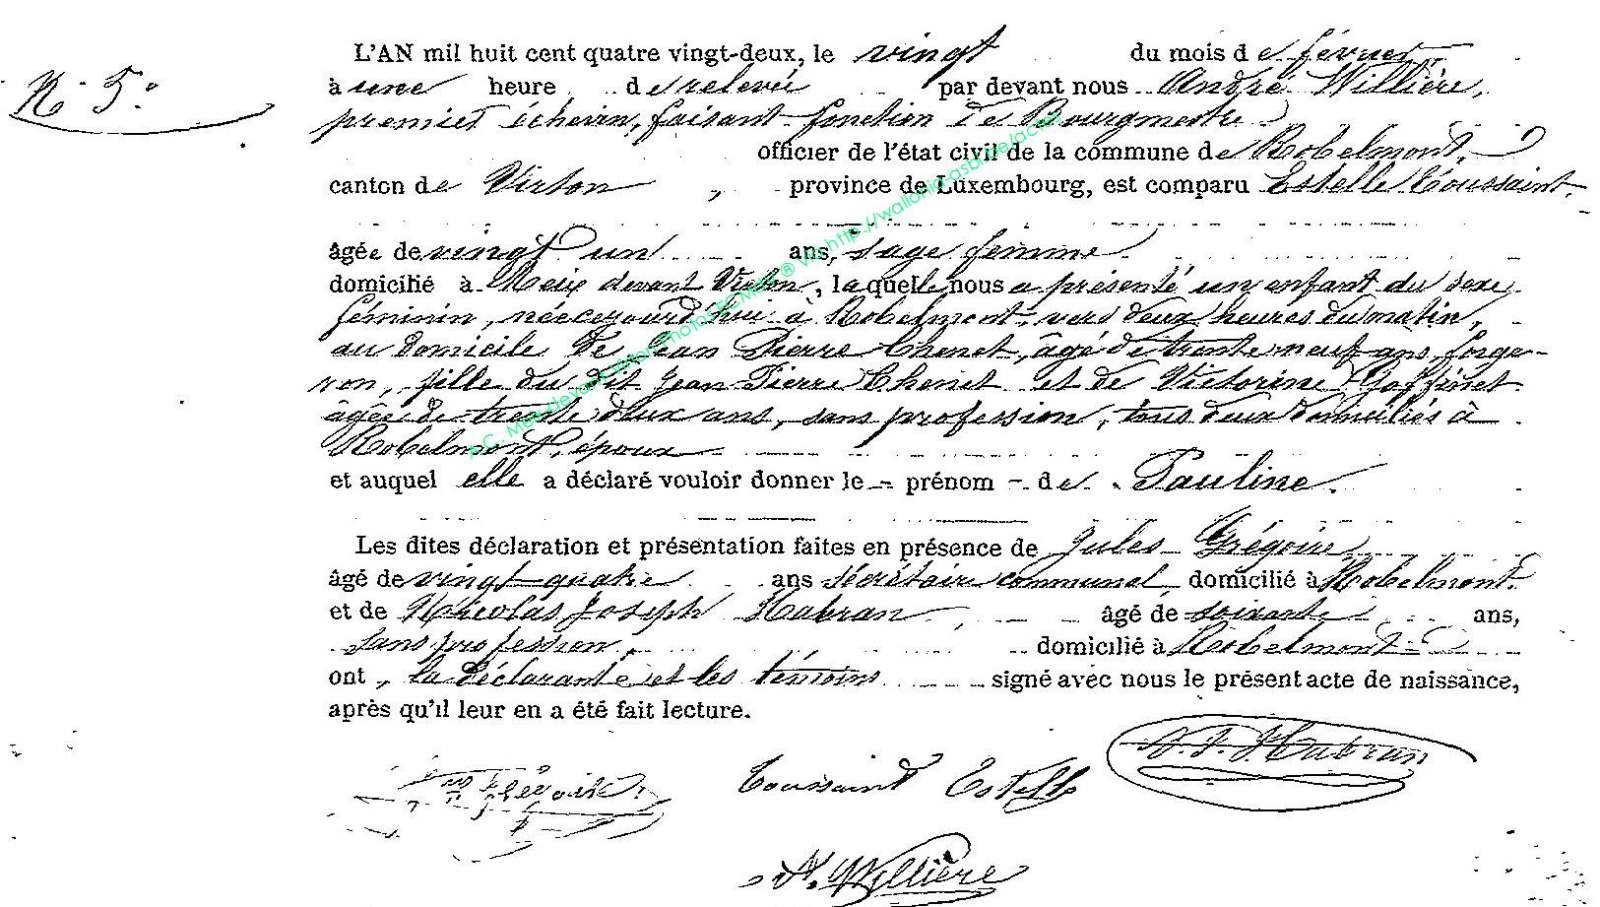 L'AN mil huit cent quatre vingt-deux, le vingt du mois de février
N° 5.
à une heure de relevée par devant nous André Willière,
premier échevin, faisant fonction de Bourgmestre
officier de l'état civil de la commune de Robelmont,
canton de Virton, province de Luxembourg, est comparu Estelle Toussaint
âgée de vingt un ans, sage femme
domicilié à Meix devant Virton, laquelle nous a présenté un enfant du sexe
féminin, née cejourd'hui à Robelmont, vers deux heures du matin,
au domicile de Jean Pierre Chenet, âgé de trente neuf ans, forge-
ron, fille du dit Jean Pierre Chenet et de Victorine Goffinet
âgée de trente deux ans, sans profession, tous deux domiciliés à
Robelmont, époux
et auquel elle a déclaré vouloir donner le prénom de Pauline.
Les dites déclaration et présentation faites en présence de Jules Grégoire
âgé de vingt-quatre ans secrétaire communal, domicilié à Robelmont.
et de Nicolas Joseph Habran, âgé de soixante ans,
sans profession, domicilié à Robelmont
ont, la déclarante et les témoins signé avec nous le présent acte de naissance,
après qu'il leur en a été fait lecture.
N. J. Habran
Toussaint Estelle
A. Willière